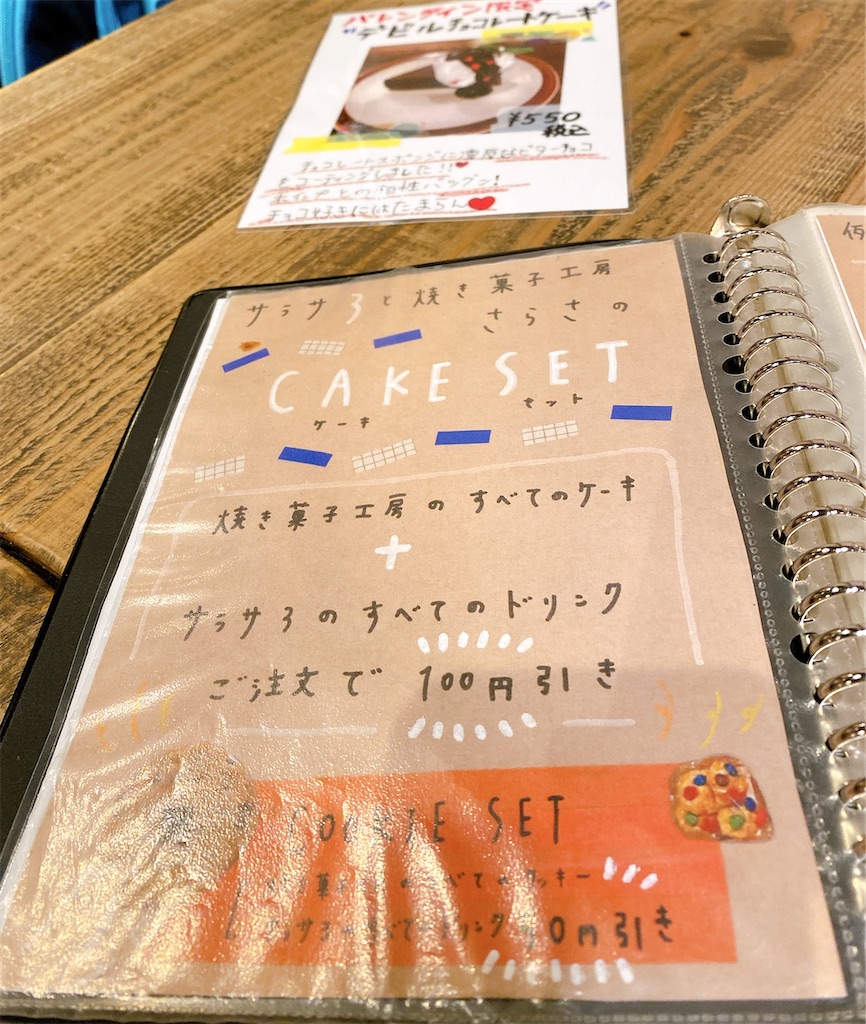 バレンタイン限定
"デビルチョコレートケーキ"
¥550
税込
チョコレートスポンジに濃厚なビターチョコ
をコーティングしました!!
との相性バツグン!
チョコ好きにはたまらん
サラサ3と焼き菓子工房
さらさの
CAKE SET
ケーキ セット
焼き菓子工房のすべてのケーキ
+
サラサ3のすべてのドリンク
ご注文で 100円引き
COOKIE SET
焼き菓子工房のすべてのクッキー
サラサ3のすべてのドリンク
0円引き